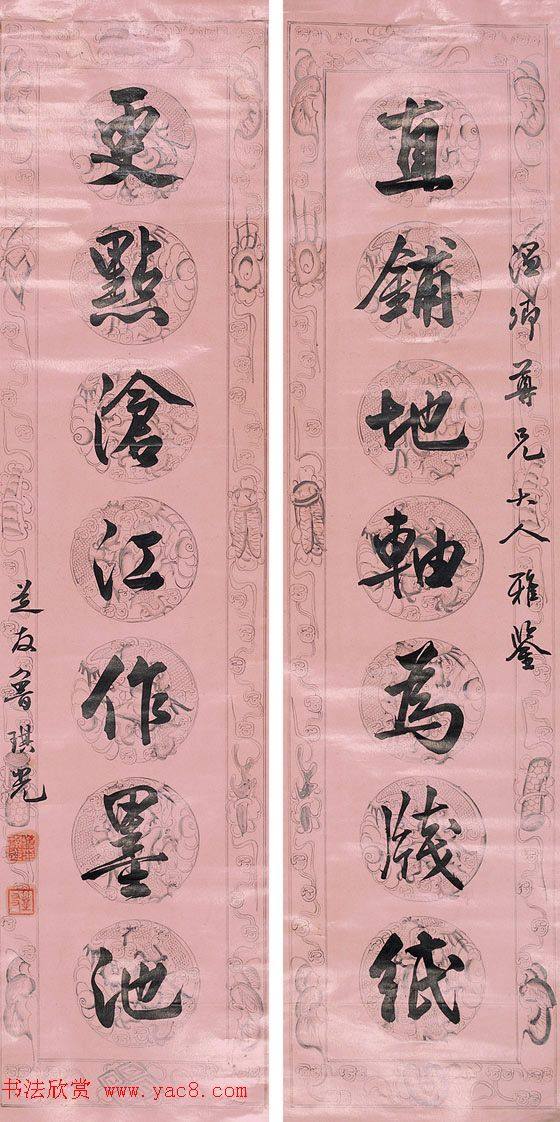 溫卿尊兄大人雅鑒
直鋪地軸為牋紙
更點滄江作墨池
芝友魯琪光
书法欣赏 www.yac8.com